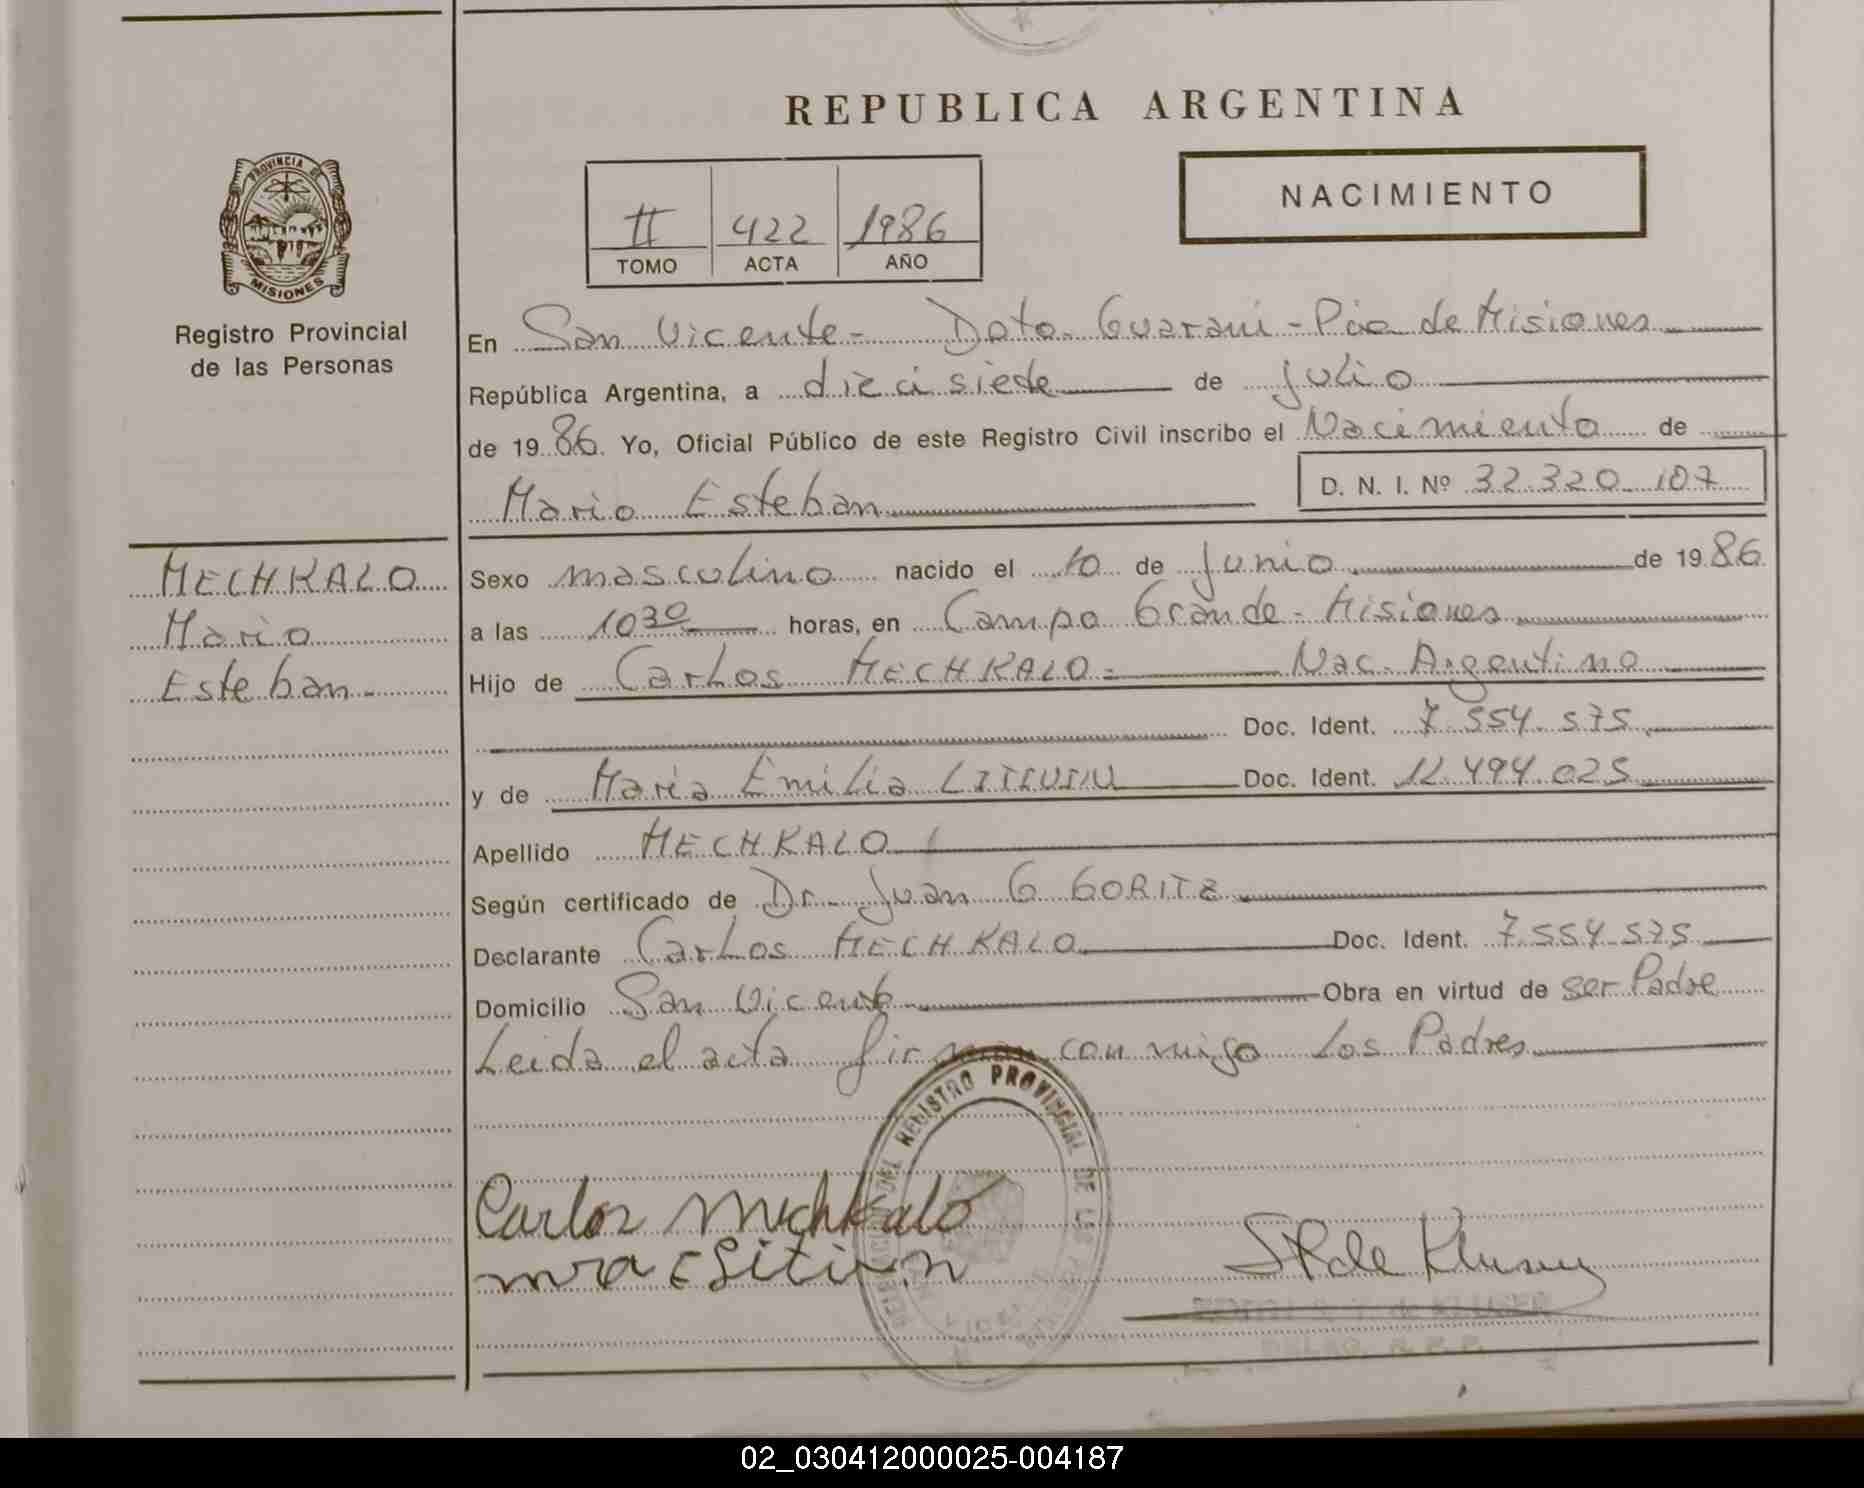 REPUBLICA ARGENTINA
PROVINCIA DE
MISIONES
Registro Provincial
de las Personas
II 422 1986
TOMO ACTA AÑO
NACIMIENTO
En San Vicente - Dpto. Guarani - Pcia de Misiones
República Argentina, a diecisiete de julio
de 1986. Yo, Oficial Público de este Registro Civil inscribo el Nacimiento de
Mario Esteban
D. N. I. Nº 32.320.107
MECHKALO
Mario
Esteban-
Sexo masculino nacido el 10 de Junio de 1986
a las 10 30 horas, en Campo Grande - Misiones
Hijo de Carlos MECHKALO - Nac. Argentino
Doc. Ident. 7.554.575
y de María Emilia Doc. Ident. 12.494.025
Apellido MECHKALO
Según certificado de Dr. Juan G GORITZ
Declarante Carlos MECHKALO Doc. Ident. 7.554.575
Domicilio San Vicente Obra en virtud de ser Padre
Leida el acta firman conmigo Los Padres
REGISTRO PROVINCIAL DE LAS
Carlos Mechkalo
de KLUSER
DELEG. R. P. P.
02_030412000025-004187